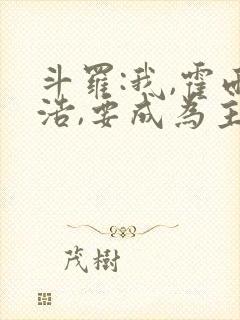 斗羅:我,霍雨
浩,要成為主
茂樹